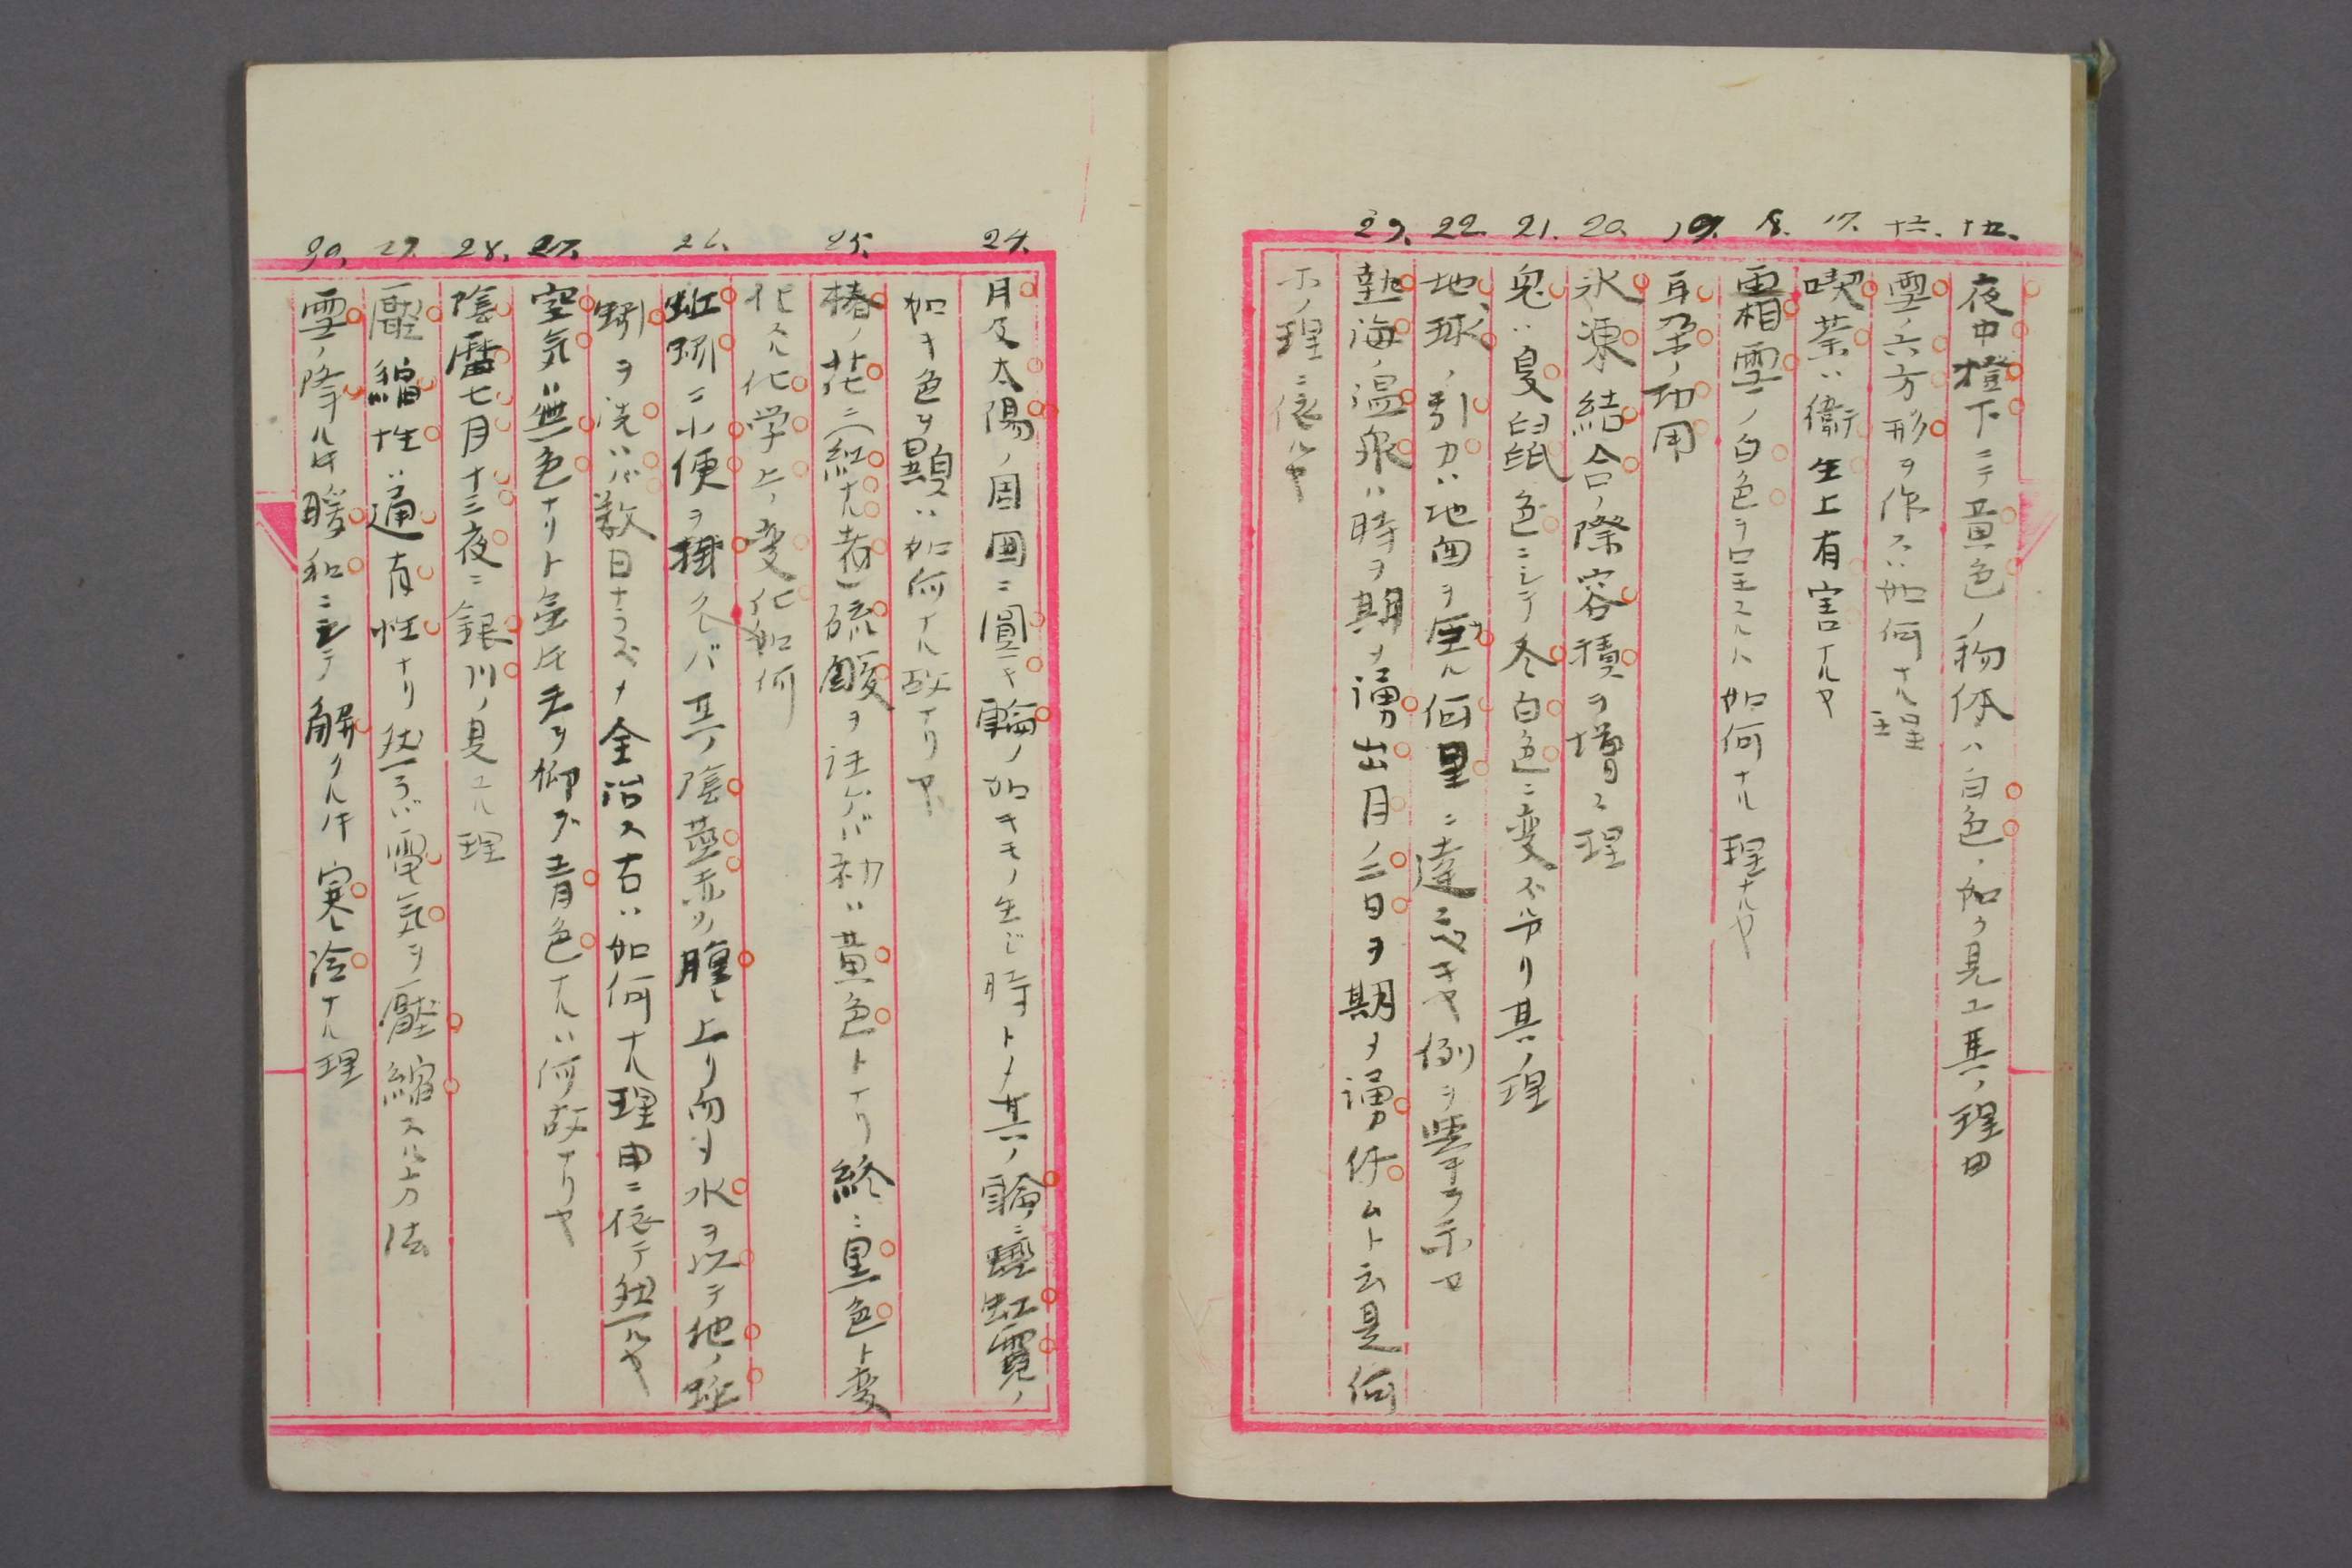 十五. 夜中橙下ニテ黄色ノ物体ハ白色ノ如ク見エ其ノ理由
十六. 雪ノ六方形ヲ作スハ如何ナル理
17. 喫茶ハ衛生上有害ナルヤ
18. 霜雪ノ白色ヲ呈スルハ如何ナル理ナルヤ
19. 耳朶ノ功用
20. 氷凍結合ノ際容積ヲ増ス理
21. 兎ハ夏鼠色ニシテ冬白色ニ変ズルナリ其ノ理
22. 地球ノ引力ハ地面ヲ圧ル何里ニ達スベキヤ例ヲ挙ラ示セ
23. 熱海ノ温泉ハ時ヲ期ヲ湧出月ノ二日ヲ期ヲ湧休ムト云是何
ホノ理ニ依ルヤ
24. 月及太陽ノ周囲ニ圓キ輪ノ如キモノ生じ時トメ其ノ輪ニ虹霓ノ
如キ色ヲ顕ハ如何ナル故ナリヤ
25. 椿ノ花ニ(紅ナル者)硫酸ヲ注ゲバ初ハ黄色トナリ終ニ黒色ト変
化スル化学上ノ変化如何
26. 蚯蚓ニ小便ヲ掛クレバ其ノ陰莖赤ク腫レ上リ而ヲ水ヲ以テ他ノ蚯
蚓ヲ洗ハバ数日ナラズメ全治ス右ハ如何ナル理由ニ依テ然ルヤ
27. 空気ハ無色ナリト虽𪜈天ヲ仰グ青色ナルハ何故ナリヤ
28. 陰暦七月十三夜ニ銀川ノ見エル理
29. 壓縮性ハ通有性ナリ然ラバ電気ヲ壓縮スル方法
30. 雪ノ降ル𪜈暖和ニシテ解クル𪜈寒冷ナル理